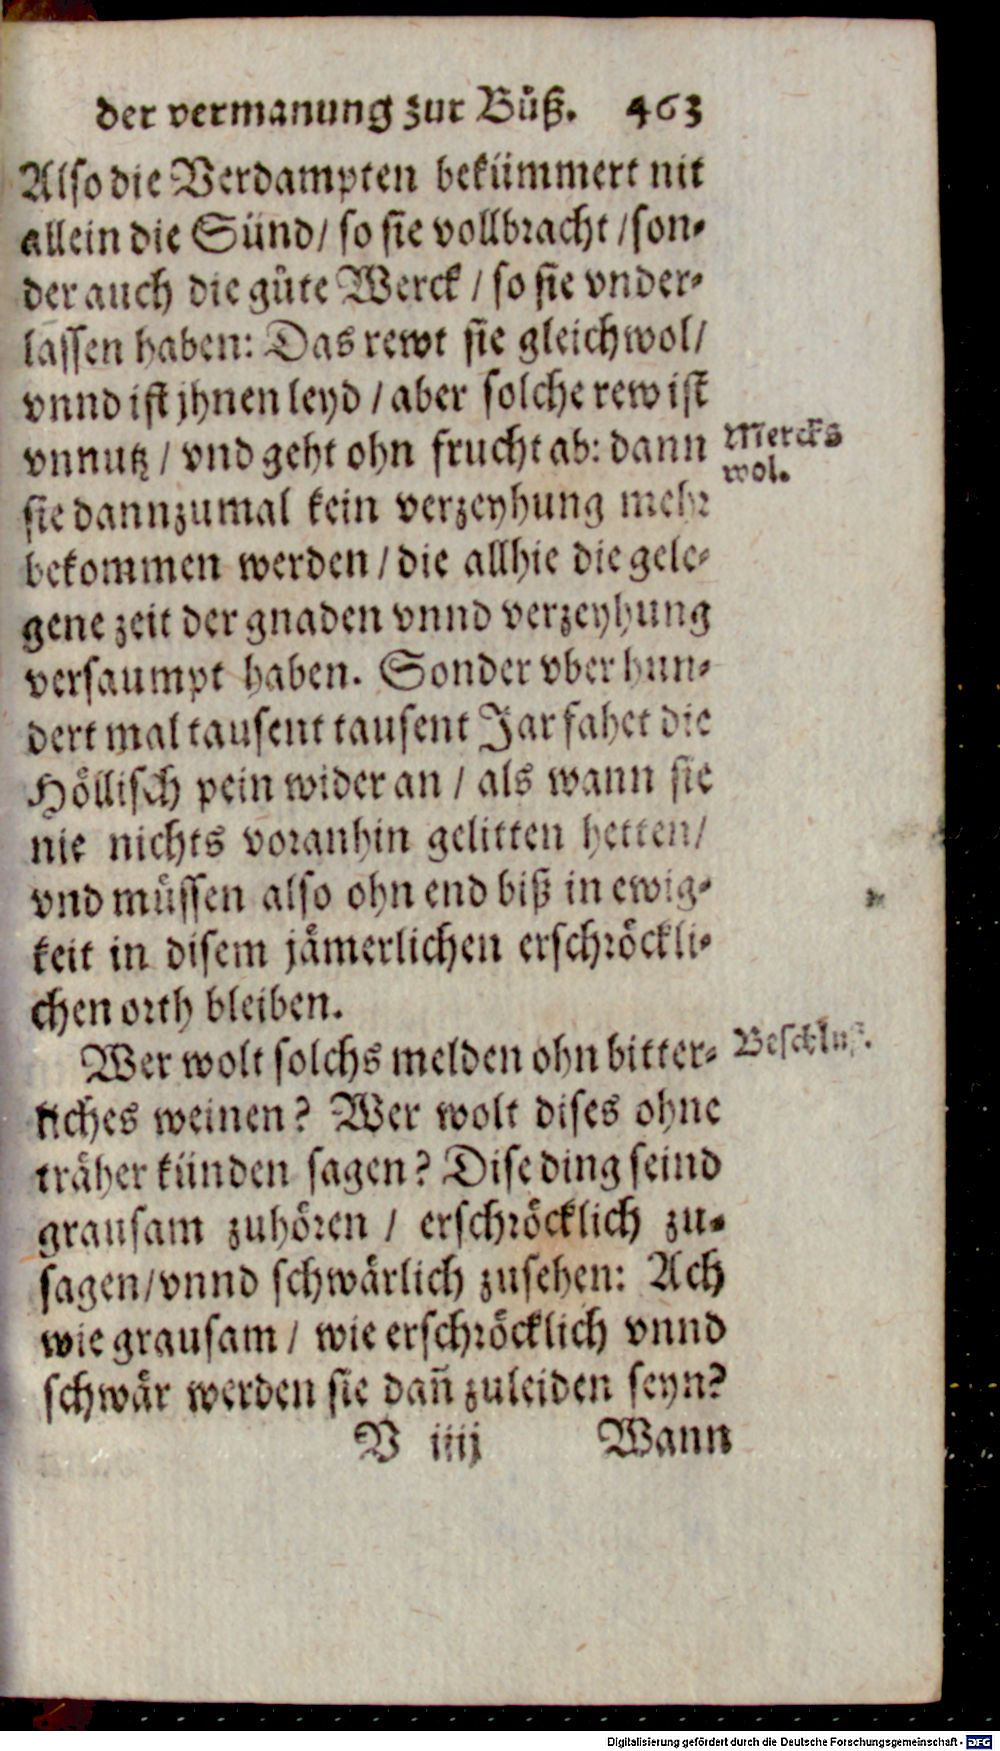 der vermanung zur Bůß. 463
Also die Verdampten bekümmert nit
allein die Sünd/ so sie vollbracht /son-
der auch die gůte Werck / so sie vnder-
lassen haben: Das rewt sie gleichwol/
vnnd ist jhnen leyd / aber solche rew ist
vnnutz / vnd geht ohn frucht ab: dann
Mercks
wol.
sie dannzumal kein verzeyhung mehr
bekommen werden / die allhie die gele-
gene zeit der gnaden vnnd verzeyhung
versaumpt haben. Sonder vber hun-
dert mal tausent tausent Jar fahet die
Höllisch pein wider an / als wann sie
nie nichts voranhin gelitten hetten/
vnd müssen also ohn end biß in ewig-
keit in disem jämerlichen erschröckli-
chen orth bleiben.
Wer wolt solchs melden ohn bitter-
Beschluß.
liches weinen? Wer wolt dises ohne
träher künden sagen? Dise ding seind
grausam zuhören / erschröcklich zu-
sagen/vnnd schwärlich zusehen: Ach
wie grausam / wie erschröcklich vnnd
schwär werden sie dañ zuleiden seyn?
V iiij Wann
Digitalisierung gefördert durch die Deutsche Forschungsgemeinschaft - DFG